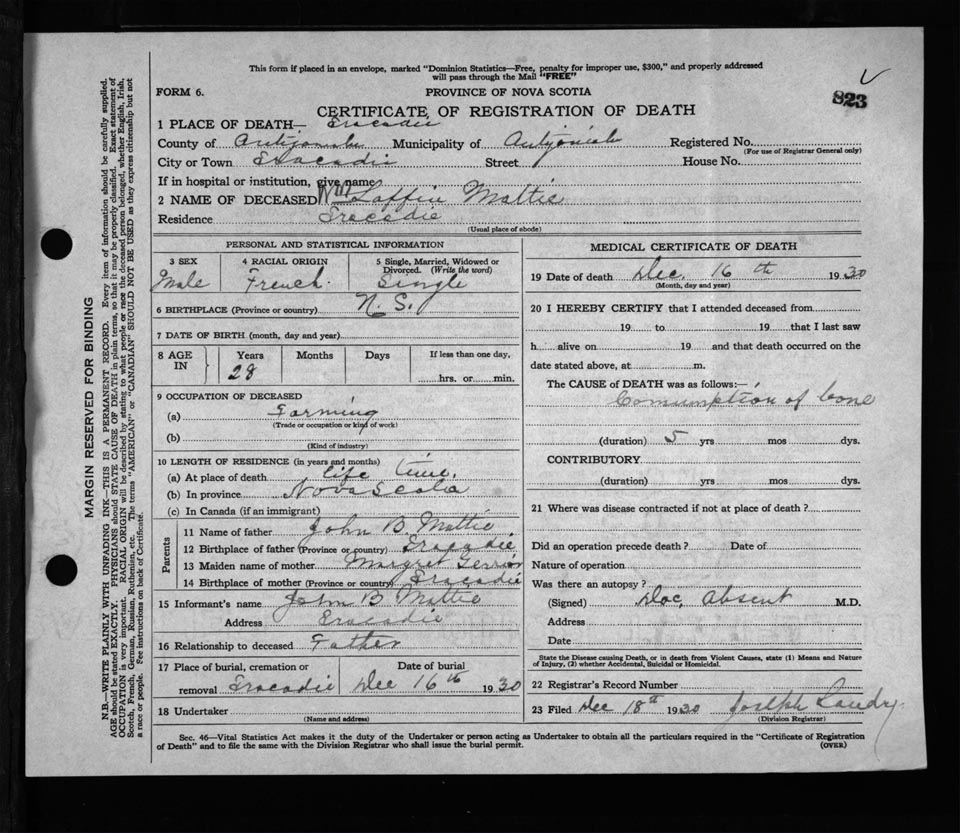 This form if placed in an envelope, marked "Dominion Statistics—Free, penalty for improper use, $300," and properly addressed
will pass through the Mail "FREE"
823
FORM 6. PROVINCE OF NOVA SCOTIA
CERTIFICATE OF REGISTRATION OF DEATH
1 PLACE OF DEATH— Tracadie
County of Antigonish Municipality of Antigonish Registered No.
(For use of Registrar General only)
City or Town Tracadie Street House No.
If in hospital or institution, give name
2 NAME OF DECEASED Laffin Mattie
Residence Tracadie
(Usual place of abode)
PERSONAL AND STATISTICAL INFORMATION
3 SEX 4 RACIAL ORIGIN 5 Single, Married, Widowed or
Divorced. (Write the word)
Male French. Single
6 BIRTHPLACE (Province or country) N. S.
7 DATE OF BIRTH (month, day and year)
8 AGE IN Years Months Days If less than one day,
28 hrs. or min.
9 OCCUPATION OF DECEASED
(a) Farming
(Trade or occupation or kind of work)
(b)
(Kind of industry)
10 LENGTH OF RESIDENCE (in years and months)
(a) At place of death life time.
(b) In province Nova Scotia
(c) In Canada (if an immigrant)
Parents
11 Name of father John B. Mattie
12 Birthplace of father (Province or country) Tracadie
13 Maiden name of mother Margret Gerrior
14 Birthplace of mother (Province or country) Tracadie
15 Informant's name John B Mattie
Address Tracadie
16 Relationship to deceased Father
17 Place of burial, cremation or Date of burial
removal Tracadie Dec 16th 1930
18 Undertaker
(Name and address)
MEDICAL CERTIFICATE OF DEATH
19 Date of death Dec. 16th 1930
(Month, day and year)
20 I HEREBY CERTIFY that I attended deceased from
19 to 19 that I last saw
h alive on 19 and that death occurred on the
date stated above, at m.
The CAUSE of DEATH was as follows:—
Comumption of bone
(duration) 5 yrs mos dys.
CONTRIBUTORY.
(duration) yrs mos dys.
21 Where was disease contracted if not at place of death?
Did an operation precede death? Date of
Nature of operation
Was there an autopsy?
(Signed) Doc, Absent M.D.
Address
Date
State the Disease causing Death, or in death from Violent Causes, state (1) Means and Nature
of Injury, (2) whether Accidental, Suicidal or Homicidal.
22 Registrar's Record Number
23 Filed Dec 18th 1930 Joseph Landry
(Division Registrar)
Sec. 46—Vital Statistics Act makes it the duty of the Undertaker or person acting as Undertaker to obtain all the particulars required in the "Certificate of Registration
of Death" and to file the same with the Division Registrar who shall issue the burial permit. (OVER)
MARGIN RESERVED FOR BINDING
N.B.—WRITE PLAINLY WITH UNFADING INK—THIS IS A PERMANENT RECORD. Every item of information should be carefully supplied.
AGE should be stated EXACTLY. PHYSICIANS should STATE CAUSE OF DEATH in plain terms, so that it may be properly classified. Exact statement of
OCCUPATION is very important. RACIAL ORIGIN will be described by stating to what people or race the deceased person belonged, whether English, Irish,
Scotch, French, German, Russian, Ruthenian, etc. The terms "AMERICAN" or "CANADIAN" SHOULD NOT BE USED as they express citizenship but not
a race or people. See instructions on back of Certificate.